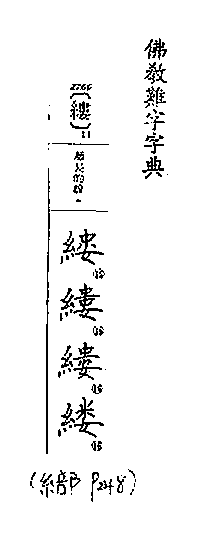 佛教難字字典
2766
〔縷〕11
縷
縷
縷
縷
(糸部 P248)